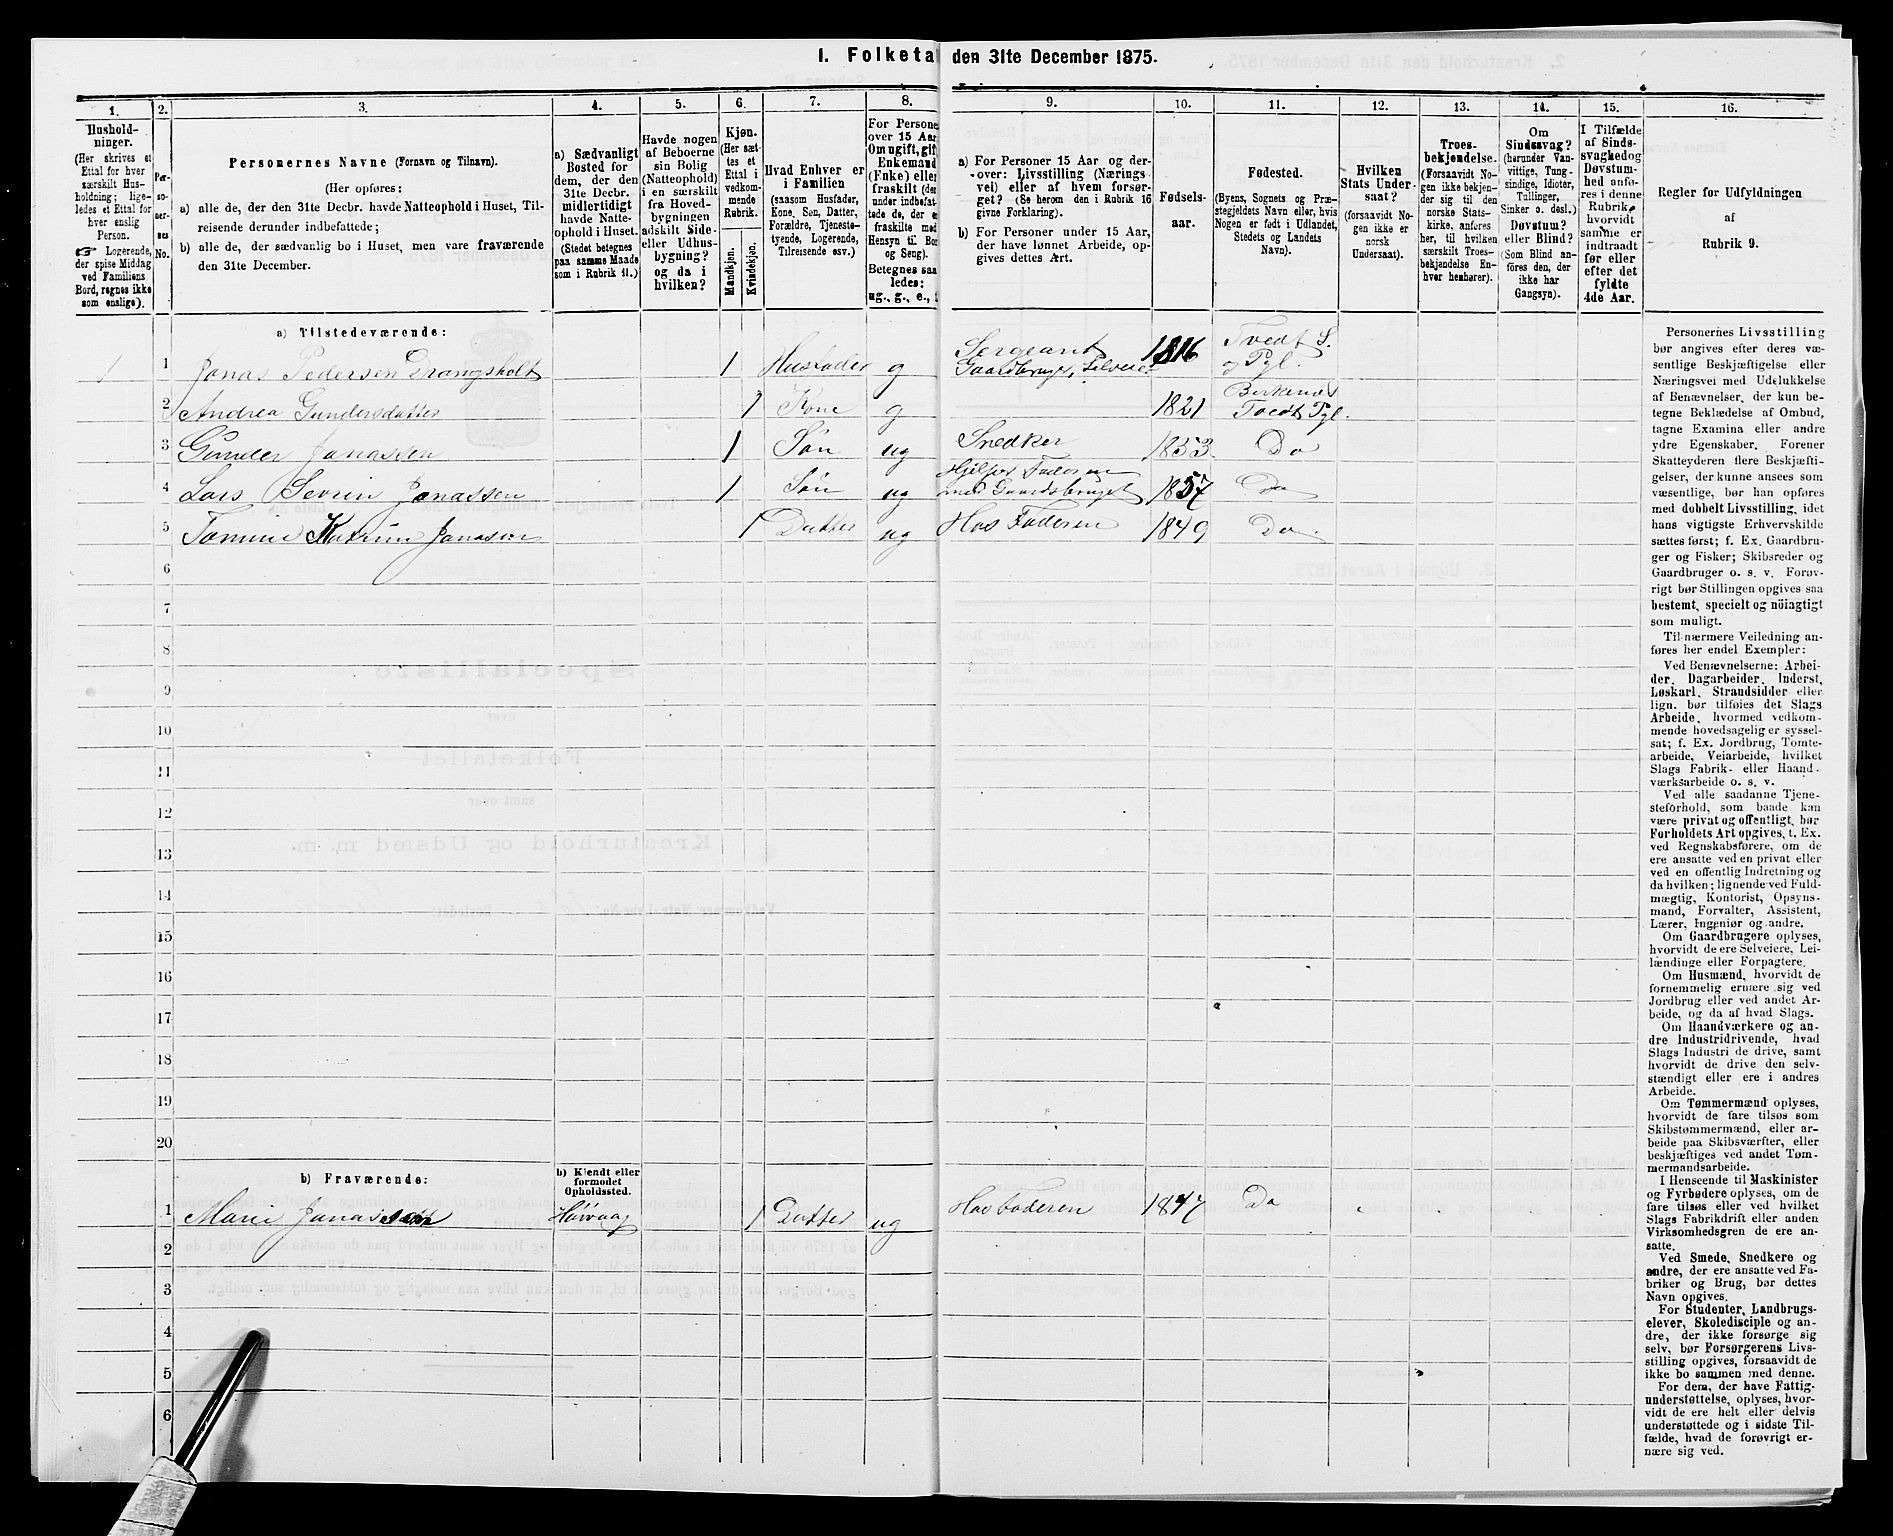 I. Folketa den 31te December 1875.
1.
Hushold-
ninger.
(Her skrives et
Ettal for hver
særskilt Hus-
holdning; lige-
ledes et Ettal for
hver enslig
Person.
☞ Logerende,
der spise Middag
ved Familiens
Bord, regnes ikke
som enslige).
2.
Per-
so-
ner-
nes
No.
3.
Personernes Navne (Fornavn og Tilnavn).
(Her opføres:
a) alle de, der den 31te Decbr. havde Natteophold i Huset, Til-
reisende derunder indbefattede;
b) alle de, der sædvanlig bo i Huset, men vare fraværende
den 31te December.
4.
a) Sædvanligt
Bosted for
dem, der den
31te Decbr.
midlertidigt
havde Natte-
ophold i Huset.
(Stedet betegnes
paa samme Maade
som i Rubrik 11.)
5.
Havde nogen
af Beboerne
sin Bolig
(Natteophold)
i en særskilt
fra Hoved-
bygningen
adskilt Side-
eller Udhus-
bygning?
og da i
hvilken?
6.
Kjøn.
(Her sæt-
tes et
Ettal i
vedkom-
mende
Rubrik.
Mandkjøn.
Kvindekjøn.
7.
Hvad Enhver er
i Familien
(saasom Husfader,
Kone, Søn, Datter,
Forældre, Tjeneste-
tyende, Logerende,
Tilreisende osv.)
8.
For Persone
over 15 Aar
Om ugift, gif
Enkemand
(Enke) elle
fraskilt (de
under indbefat-
tede de, der e
fraskilte med
Hensyn til Bo
og Seng).
Betegnes saa
ledes:
ug., g., e.,
9.
a) For Personer 15 Aar og der-
over: Livsstilling (Nærings-
vei) eller af hvem forsør-
get? (Se herom den i Rubrik 16
givne Forklaring).
b) For Personer under 15 Aar,
der have lønnet Arbeide, op-
gives dettes Art.
10.
Fødsels-
aar.
11.
Fødested.
(Byens, Sognets og Præ-
stegjeldets Navn eller, hvis
Nogen er født i Udlandet,
Stedets og Landets
Navn).
12.
Hvilken
Stats Under-
saat?
(forsaavidt No-
gen ikke er
norsk
Undersaat).
13.
Troes-
bekjendelse.
(Forsaavidt No-
gen ikke bekjen-
der sig til den
norske Stats-
kirke, anføres
her, til hvilken
særskilt Troes-
bekjendelse En-
hver henhører).
14.
Om
Sindssvag?
(herunder Van-
vittige, Tung-
sindige, Idioter,
Tullinger,
Sinker o. desl.)
Døvstum?
eller Blind?
(Som Blind an-
føres den, der
ikke har
Gangsyn).
15.
I Tilfælde
af Sinds-
svaghed og
Døvstum-
hed anfø-
res i denne
Rubrik,
hvorvidt
samme er
indtraadt
før eller
efter det
fyldte
4de Aar.
16.
Regler for Udfyldningen
af
Rubrik 9.
a) Tilstedeværende:
1 1 Jonas Pedersen Drangsholt 1 Husfader g Sergeant Gaardbruger, Selveier 1816 Tvedt S. og Pgl.
2 Andrea Gundersdatter 1 Kone g 1821 Birkenæs Tvedt Pgl.
3 Gunder Jonassen 1 Søn ug Snedker 1853. Do
4 Lars Severin Jonassen 1 Søn ug Hjelper Faderen med Gaardsbruget 1857 Do
5 Tomine Katrine Jonassen 1 Datter ug Hos Faderen 1849 Do.
6
7
8
9
10
11
12
13
14
15
16
17
18
19
20
b) Fraværende:
b) Kjendt eller
formodet
Opholdssted.
1 Marie Jonasdatter Høivaag 1 Datter ug Hos Faderen 1847 Do
2
3
4
5
6
Personernes Livsstilling
bør angives efter deres væ-
sentlige Beskjæftigelse eller
Næringsvei med Udelukkelse
af Benævnelser, der kun be-
tegne Beklædelse af Ombud,
tagne Examina eller andre
ydre Egenskaber. Forener
Skatteyderen flere Beskjæfti-
gelser, der kunne ansees som
væsentlige, bør han opføres
med dobbelt Livsstilling, idet
hans vigtigste Erhvervskilde
sættes først; f. Ex. Gaardbru-
ger og Fisker; Skibsreder og
Gaardbruger o. s. v. Forøv-
rigt bør Stillingen opgives saa
bestemt, specielt og nøiagtigt
som muligt.
Til nærmere Veiledning an-
føres her endel Exempler:
Ved Benævnelserne: Arbei-
der, Dagarbeider, Inderst,
Løskarl, Strandsidder eller
lign. bør tilføies det Slags
Arbeide, hvormed vedkom-
mende hovedsagelig er syssel-
sat; f. Ex. Jordbrug, Tomte-
arbeide, Veiarbeide, hvilket
Slags Fabrik- eller Haand-
værksarbeide o. s. v.
Ved alle saadanne Tjene-
steforhold, som baade kan
være privat og offentligt, bør
Forholdets Art opgives, t. Ex.
ved Regnskabsførere, om de
ere ansatte ved en privat eller
ved en offentlig Indretning og
da hvilken; lignende ved Fuld-
mægtig, Kontorist, Opsyns-
mand, Forvalter, Assistent,
Lærer, Ingeniør og andre.
Om Gaardbrugere oplyses,
hvorvidt de ere Selveiere, Lei-
lændinge eller Forpagtere.
Om Husmænd, hvorvidt de
fornemmelig ernære sig ved
Jordbrug eller ved andet Ar-
beide, og da af hvad Slags.
Om Haandværkere og an-
dre Industridrivende, hvad
Slags Industri de drive, samt
hvorvidt de drive den selv-
stændigt eller ere i andres
Arbeide.
Om Tømmermænd oplyses,
hvorvidt de fare tilsøs som
Skibstømmermænd, eller ar-
beide paa Skibsværfter, eller
beskjæftiges ved andet Tøm-
mermandsarbeide.
I Henseende til Maskinister
og Fyrbødere oplyses, om de
fare tilsøs eller ved hvilket
Slags Fabrikdrift eller anden
Virksomhedsgren de ere an-
satte.
Ved Smede, Snedkere og
andre, der ere ansatte ved Fa-
briker og Brug, bør dettes
Navn opgives.
For Studenter, Landbrugs-
elever, Skoledisciple og an-
dre, der ikke forsørge sig
selv, bør Forsørgerens Livs-
stilling opgives, forsaavidt de
ikke bo sammen med denne.
For dem, der have Fattig-
understøttelse, oplyses, hvor-
vidt de ere helt eller delvis
understøttede og i sidste Til-
fælde, hvad de forøvrigt er-
nære sig ved.